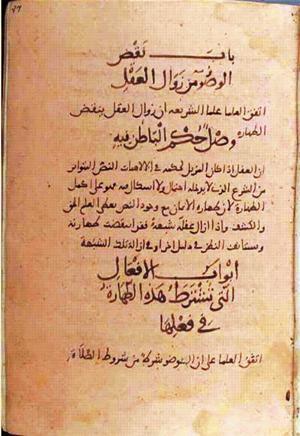 باب نقض
الوضو من زوال العقل
اتفق العلما علما الشريعة ان زوال العقل ينقض
الطهارة
وصل حكم الباطن فيه
ان العقل اذا كان المزيل لحكمه في الالاهيات النص المتواتر
من الشرع الذي لا يدخله احتمال ولا اشكال فيه فهو على اكمل
الطهارة لان طهارة الايمان مع وجود النص يعطي العلم الحق
والكشف واذا زال عقله بشبهة فقد انتقضت طهارته
ويستانف النظر في دليل اخر او في ازالة تلك الشبهة
ابواب الافعال
التي تشترط هذه الطهارة
في فعلها
اتفق العلما على ان الوضو شرط من شروط الصلاة